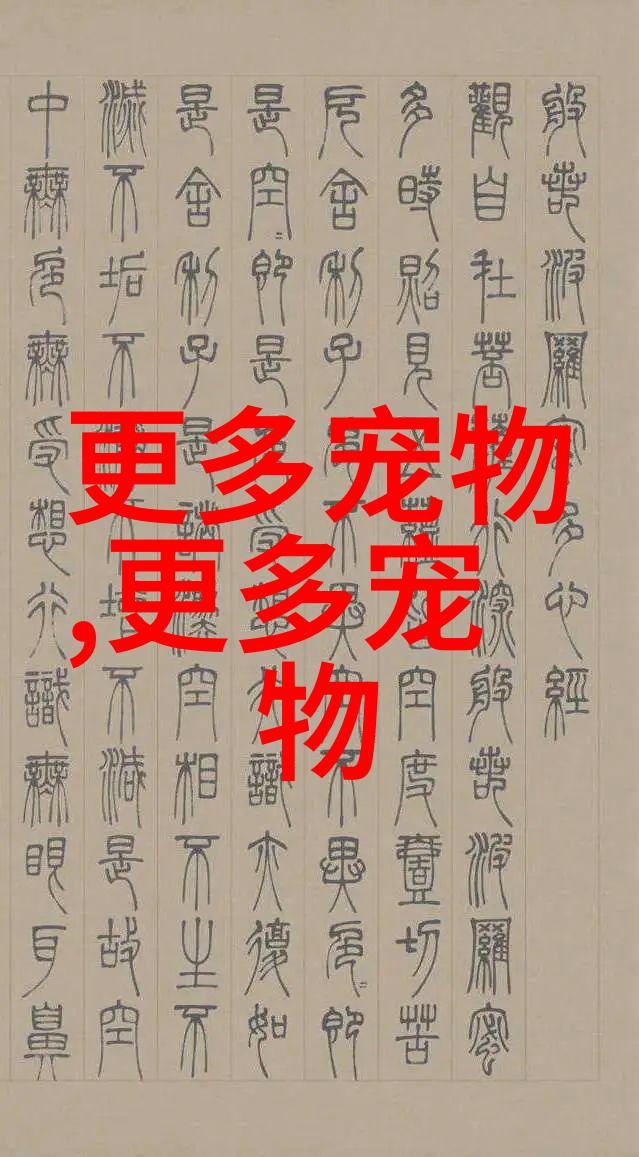 般若波羅蜜多心經
觀自在菩薩行深般若波羅蜜
多時照見五蘊皆空度壹切苦
厄舍利子色不異空不異色〻即
是空〻即是色受想行識亦復如
是舍利子是諸法空相不生不
滅不垢不淨不增不減是故空
中無色無受想行識無眼耳鼻
更多宠物
,更多宠
物